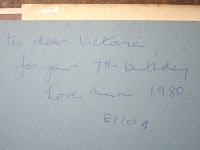 to dear Victoria,
for your 7th birthday
love mum 1980.
Ellen